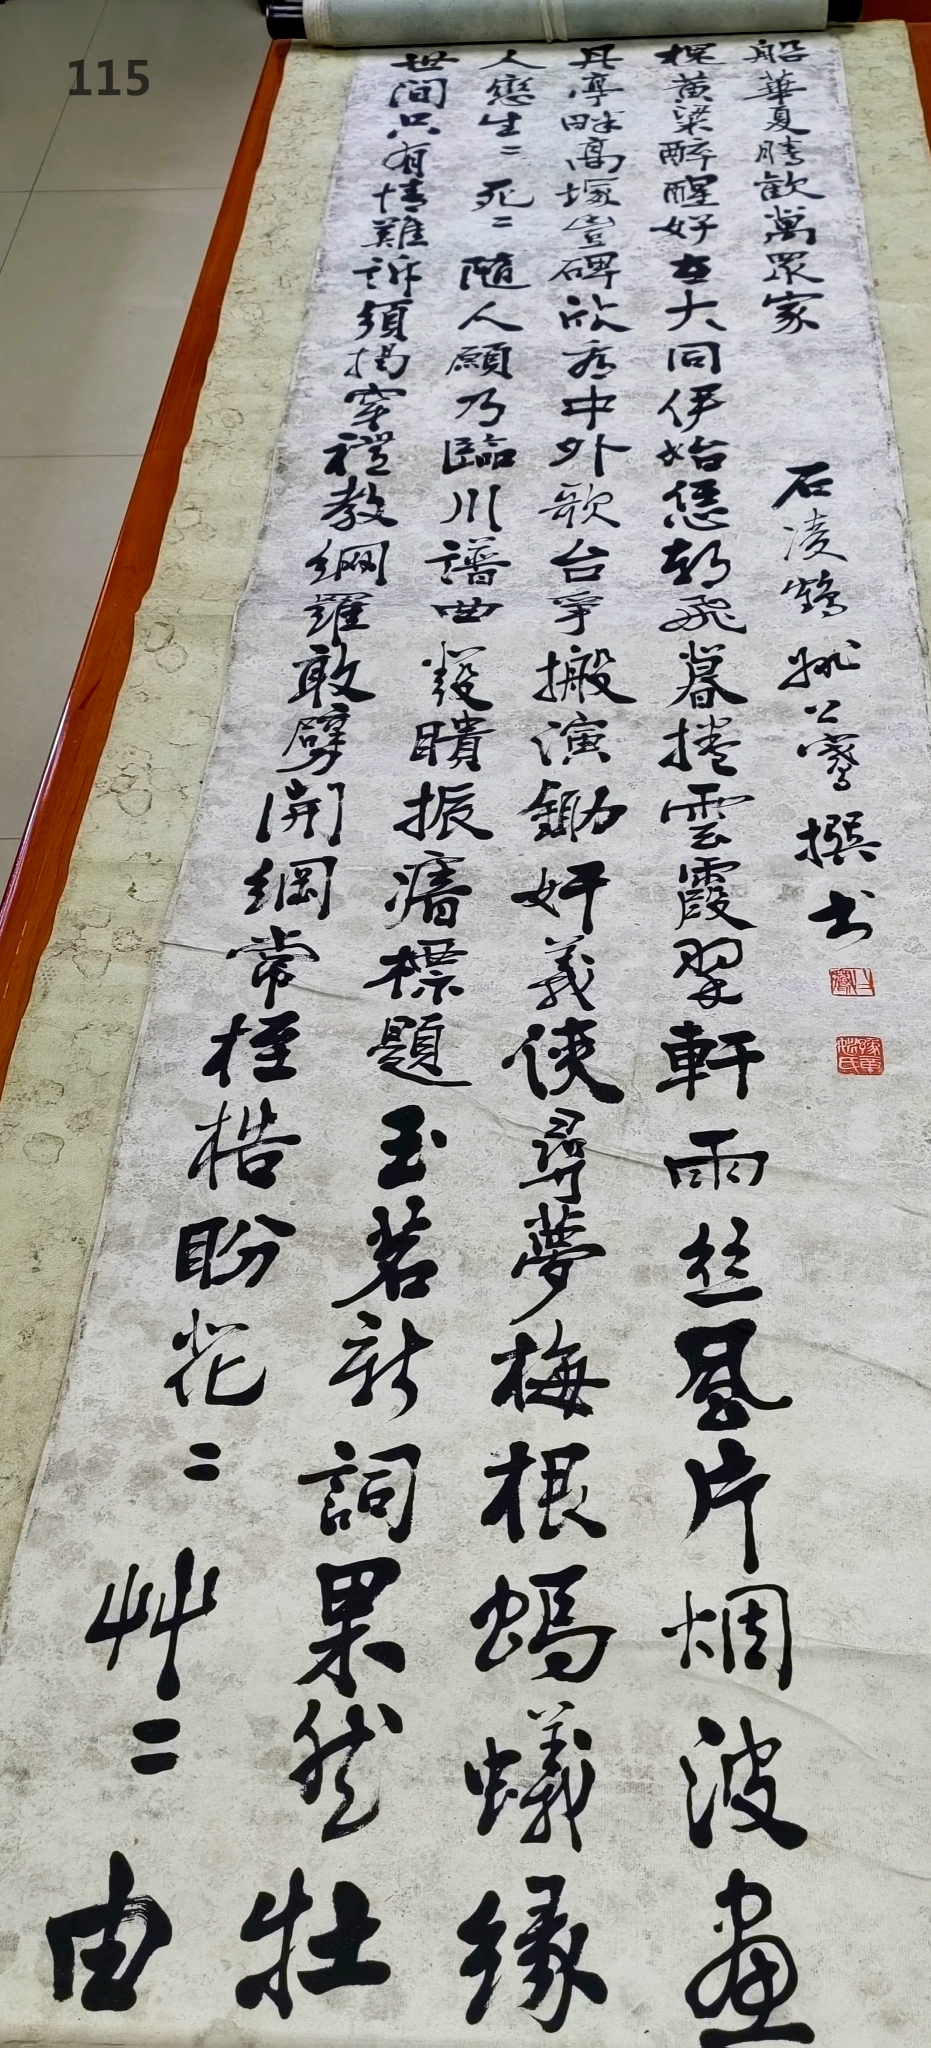 115
世間只有情難訴須揭穿禮教網羅敢劈開綱常桎梏盼花二艸二由
人戀生二死二隨人願乃臨川譜曲發聵振瘖標題玉茗新詞果然牡
丹亭畔高塚豐碑欣看中外歌台爭搬演鋤奸義俠尋夢梅根螞蟻緣
槐黃粱醉醒好在大同伊始恁朝飛暮捲雲霞翠軒雨丝風片烟波畫
船華夏騰歡萬眾家
石凌鶴 姚公騫撰书